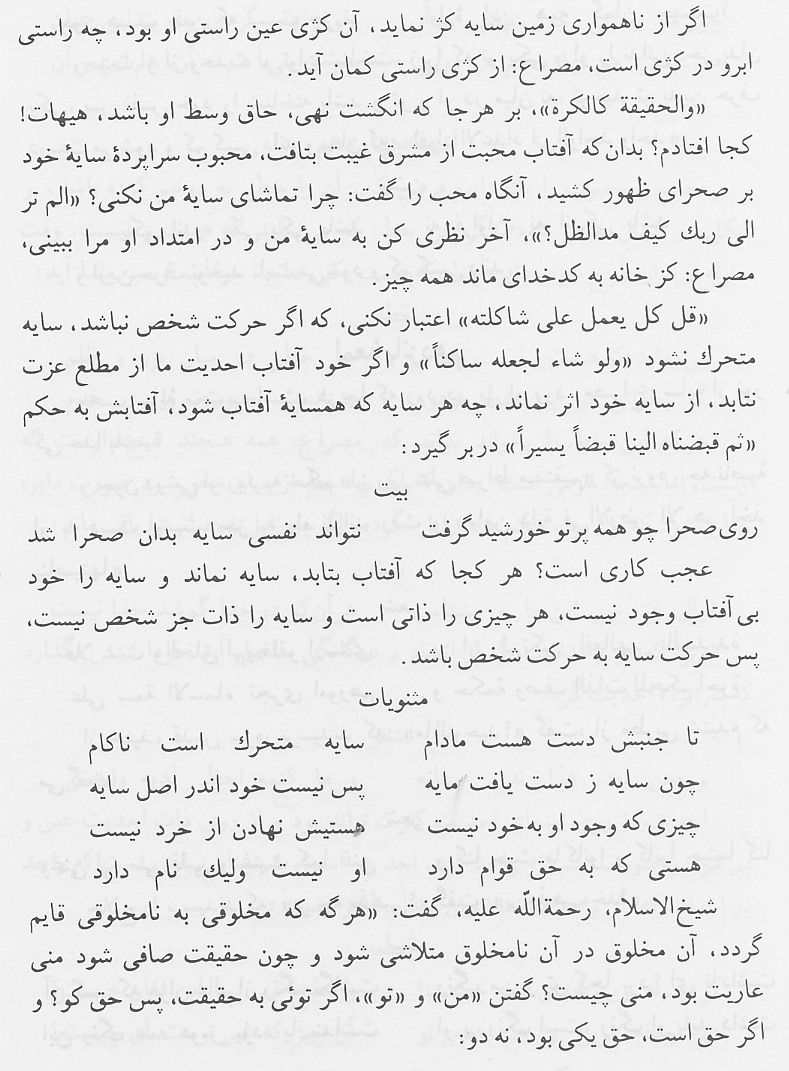 اگر از ناهمواری زمین سایه کژ نماید، آن کژی عین راستی او بود، چه راستی
ابرو در کژی است، مصراع: از کژی راستی کمان آید.
«والحقیقة کالکرة»، بر هرجا که انگشت نهی، حاق وسط او باشد، هیهات!
کجا افتادم؟ بدان‌که آفتاب محبت از مشرق غیبت بتافت، محبوب سراپردهٔ سایهٔ خود
بر صحرای ظهور کشید، آنگاه محب را گفت: چرا تماشای سایهٔ من نکنی؟ «الم تر
الی ربك کیف مدالظل؟»، آخر نظری کن به سایهٔ من و در امتداد او مرا ببینی،
مصراع: کز خانه به کدخدای ماند همه چیز.
«قل کل یعمل علی شاکلته» اعتبار نکنی، که اگر حرکت شخص نباشد، سایه
متحرك نشود «ولو شاء لجعله ساکناً» و اگر خود آفتاب احدیت ما از مطلع عزت
نتابد، از سایه خود اثر نماند، چه هر سایه که همسایهٔ آفتاب شود، آفتابش به حکم
«ثم قبضناه الینا قبضاً یسیراً» در بر گیرد:
بیت
روی صحرا چو همه پرتو خورشید گرفت نتواند نفسی سایه بدان صحرا شد
عجب کاری است؟ هر کجا که آفتاب بتابد، سایه نماند و سایه را خود
بی‌آفتاب وجود نیست، هر چیزی را ذاتی است و سایه را ذات جز شخص نیست،
پس حرکت سایه به حرکت شخص باشد.
مثنویات
تا جنبش دست هست مادام سایه متحرك است ناکام
چون سایه ز دست یافت مایه پس نیست خود اندر اصل سایه
چیزی که وجود او به‌خود نیست هستیش نهادن از خرد نیست
هستی که به حق قوام دارد او نیست ولیك نام دارد
شیخ‌الاسلام، رحمة‌اللّه علیه، گفت: «هرگه که مخلوقی به نامخلوقی قایم
گردد، آن مخلوق در آن نامخلوق متلاشی شود و چون حقیقت صافی شود منی
عاریت بود، منی چیست؟ گفتن «من» و «تو»، اگر توئی به حقیقت، پس حق کو؟ و
اگر حق است، حق یکی بود، نه دو: